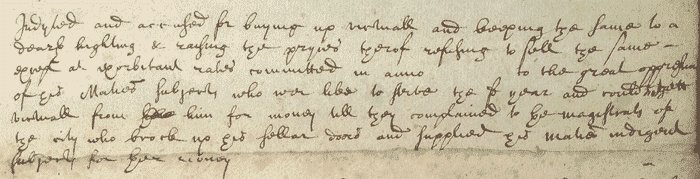 Indyted and accused for buying up victuall and keeping the same to a
dearth highting & raising the pryces therof refusing to sell the same
except at exorbitant rates committed in anno to the great oppression
of his Maties subjects who wer like to sterve the year and could not gett
victuall from him for money till they complained to the magistrats of
the city who brock up his sellar doors and supplied his Maties indigent
subjects for ther money